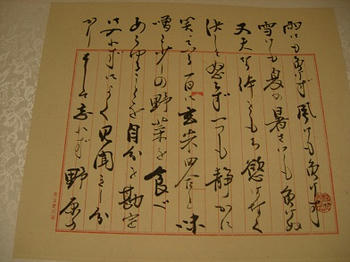 雨にも負けず風にも負けず
雪にも夏の暑さにも負けぬ
丈夫な体をもち慾はなく
決して怒らずいつも静かに
笑っている一日に玄米四合と味
噌と少しの野菜を食べ
あらゆることを自分を勘定
に入れずによく見聞きし分
かりそして忘れず野原の